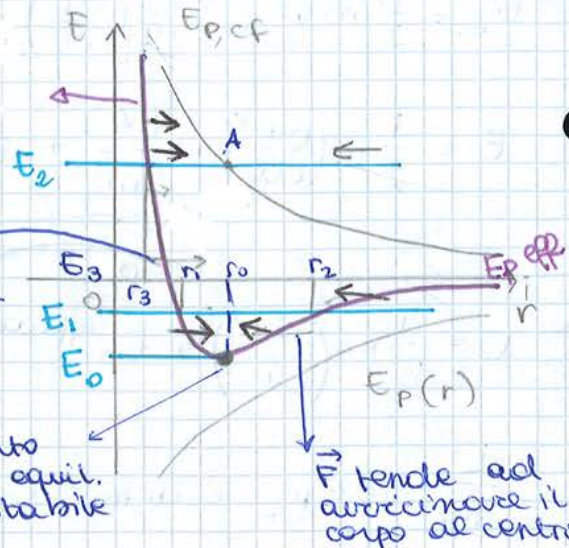 E
Ep,cf
A
E₂
E₃
r₃
r₁
r₀
r₂
Ep eff
r
0
E₁
E₀
Ep(r)
equil.
F⃗ tende ad
avvicinare il
corpo al centr